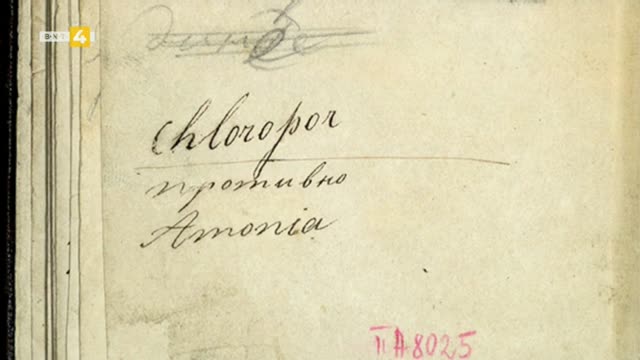 БНТ 4
Chloropor
противно
Amonia
II A 8025